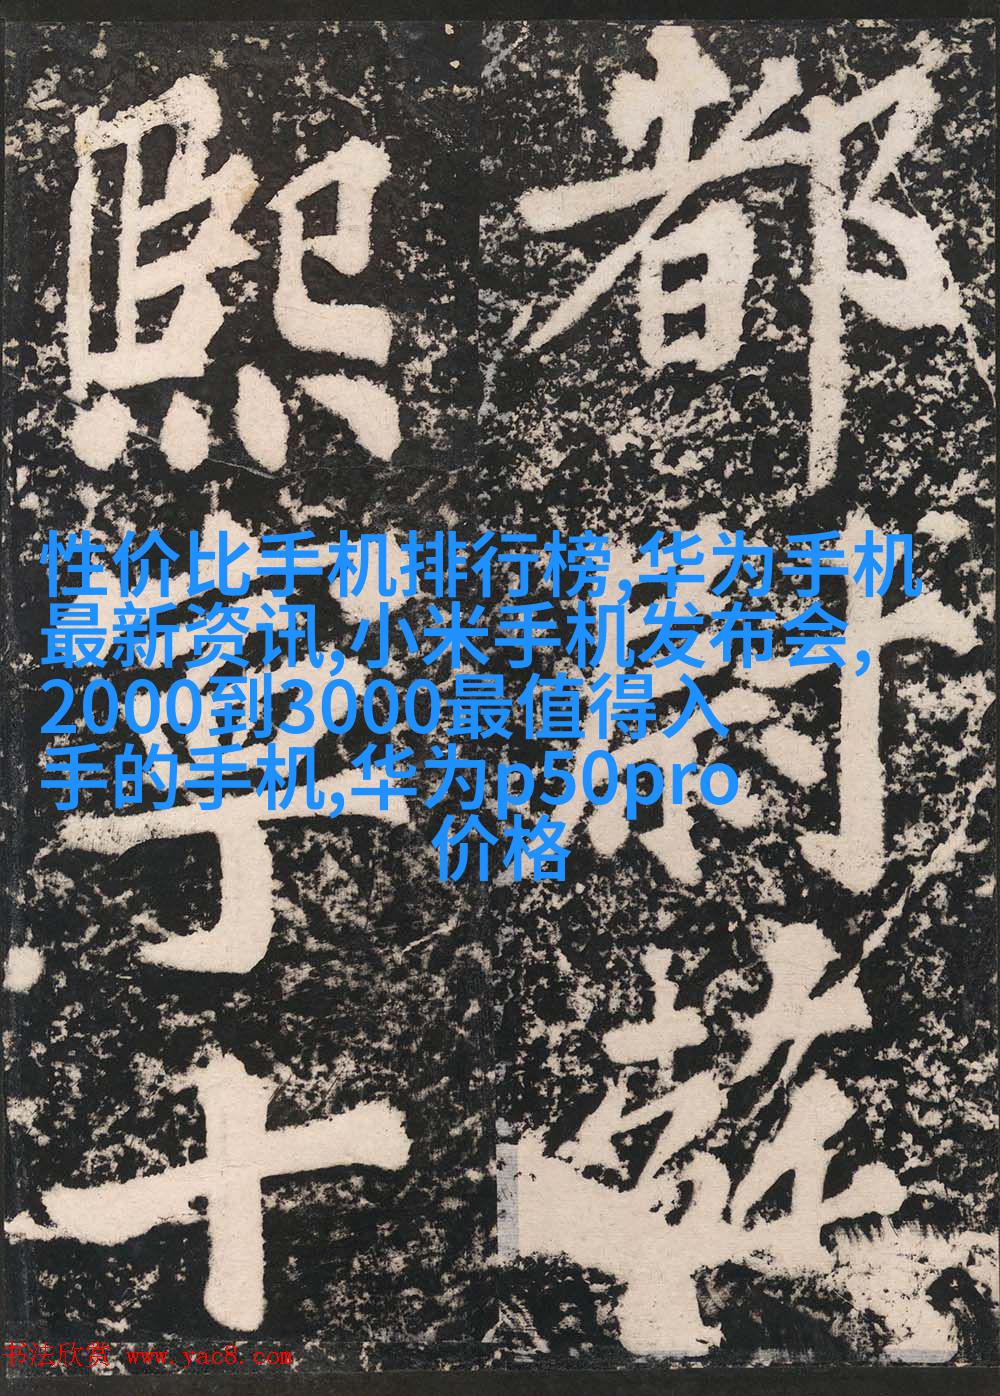 都尉
熙寧十
性价比手机排行榜,华为手机
最新资讯,小米手机发布会,
2000到3000最值得入
手的手机,华为p50pro
价格
书法欣赏 www.yac8.com